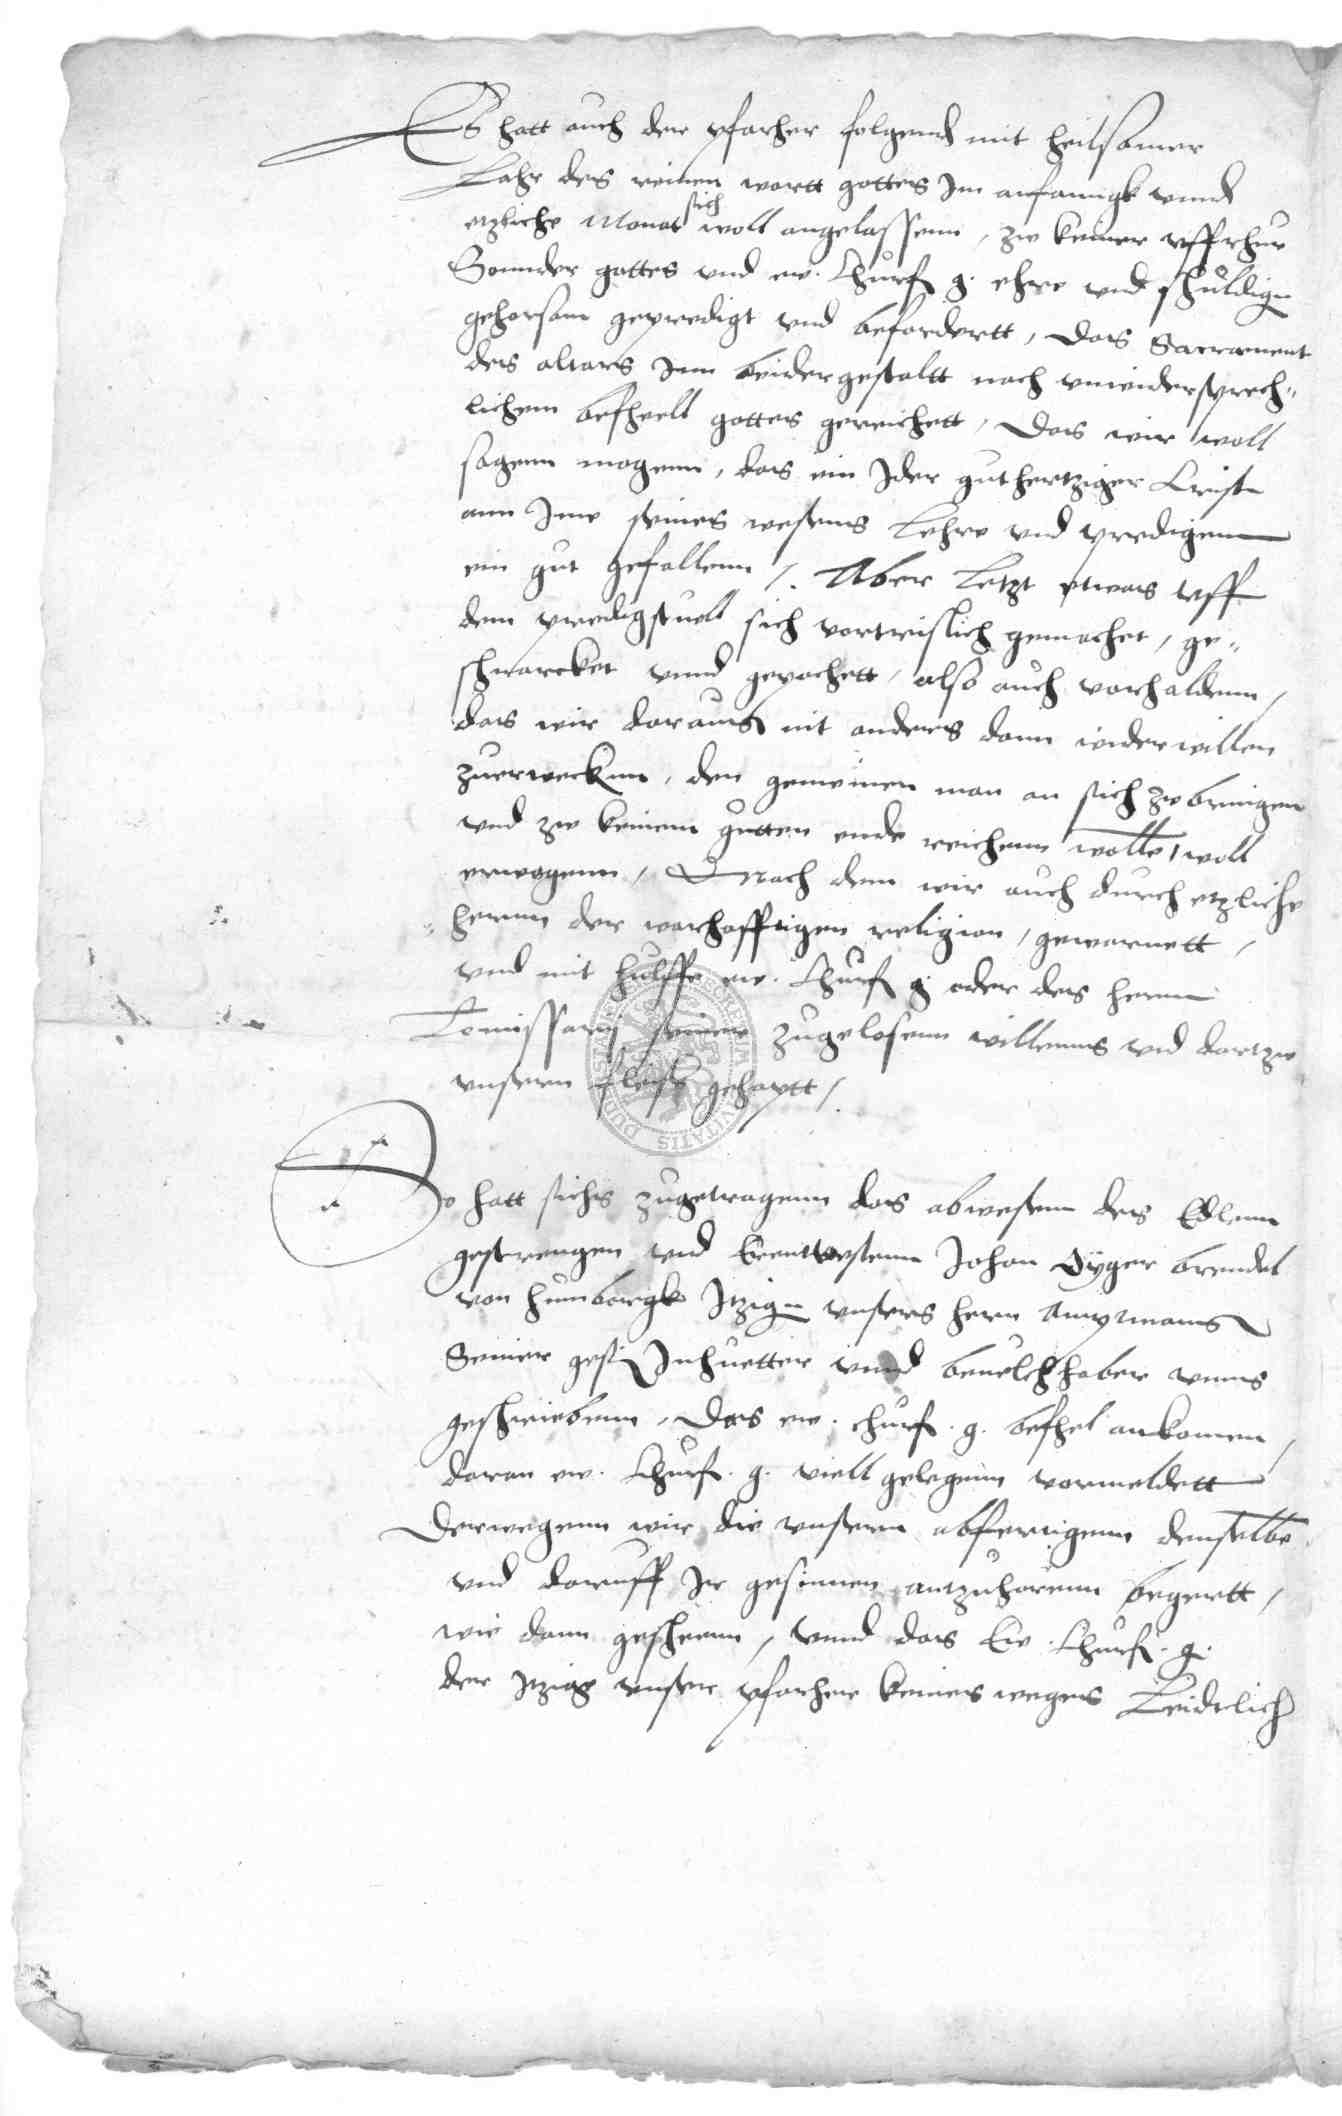 Es hatt auch der pfarher folgends mit heilsamer
Lahr des reinen wortt gottes Im anfanngk vnnd
etzliche Monat sich woll angelassenn, zw keiner vffrhur
Sonnder gottes vnd ew. Churf g. ehre vnd schuldign
gehorsam gepredigt vnd befordertt, Das Sacrament
des altars Inn beidergestaltt nach vnwidersprech-
lichem befhell gottes gereichett, Das wir woll
sagenn mogenn, das ein Jder guthertziger Crist
ann Ime seines wesenns Lehre vnd predigenn
ein gut gefallenn /. Aber Letzt etwas vff
dem predigstuell sich vortrislich gemachet, ge-
schnarcket vnnd gepochett, also auch vorhaldenn,
das wir daraus nit anders dann widerwillen
zuerweckenn, den gemeinen man an sich zw bringen
vnd zw keinem gutten ende reichenn wolle, woll
erwogenn, Nach dem wir auch durch etzliche
hernn der warhafftigen religion, gewarnett,
vnd mit hulffe ew. Churf g oder des hernn
Comissarij seiner zugelosenn willenns vnd dartzw
vnsern fleis gehaptt /.
So hatt sichs zugetragenn das abwesenn des Edlenn
gestrengen vnd Erentvestenn Johan Oyger brendel
von humborgk Itzign vnsers hern Amptmanns
Seiner gest Inhuetter vnnd beuelchhaber vnns
geschriebenn, Das ew. churf. g. befhel ankomen,
daran ew. Churf. g. viell gelegenn vormeldett
Derwegenn wir die vnsern abfertigenn denselbe
vnd daruff Ir gesinnen antzuhorenn begertt,
wie dann gescheenn, vnnd das Ew. Churf. g.
der Itzige vnser pfarher keines weges Leidelich